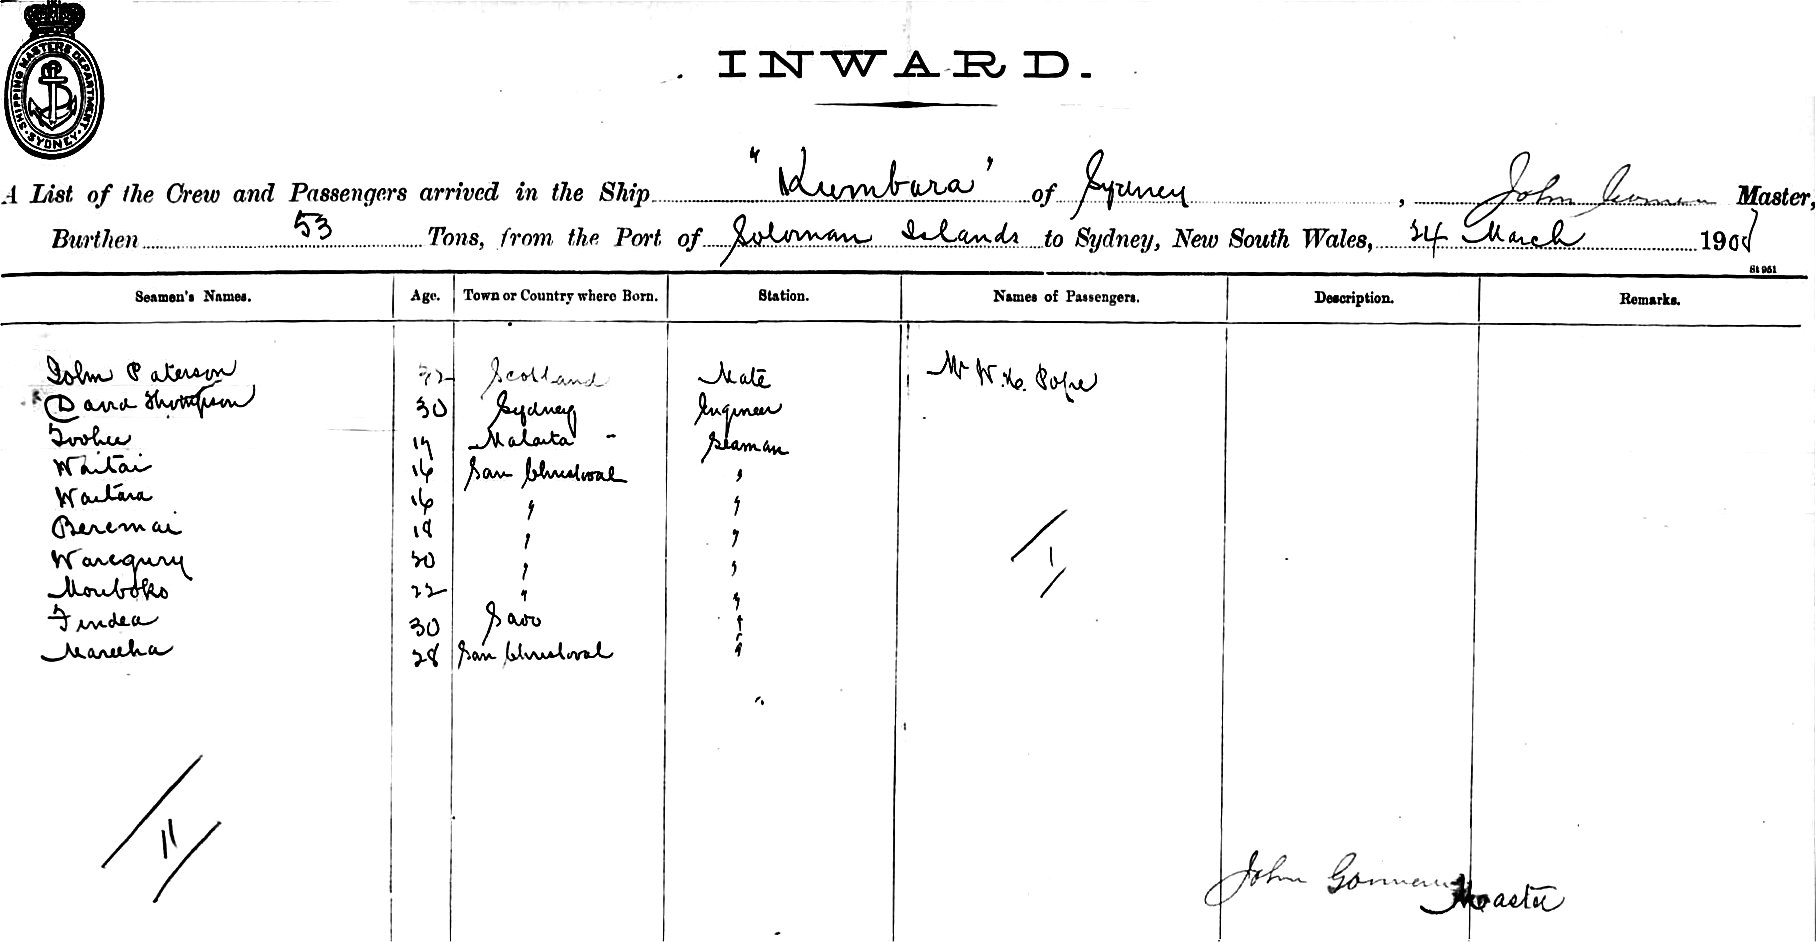 SHIPPING MASTERS DEPARTMENT · SYDNEY ·
INWARD.
A List of the Crew and Passengers arrived in the Ship "Kumbara" of Sydney, John Master,
Burthen 53 Tons, from the Port of Soloman Islands to Sydney, New South Wales, 24 March 190
St 951
Seamen's Names. Age. Town or Country where Born. Station. Names of Passengers. Description. Remarks.
John Paterson 32 Scotland Mate Mr W. H. Pope
David Thompson 30 Sydney Engineer
Toohee 19 Malaita " Seaman
Waitai 16 San Christoval "
Waitara 16 " "
Beremai 18 " "
Waregury 20 " "
Mouboko 22 " "
Findea 30 Savo "
Mareeha 28 San Christoval "
/ 1 /
/ 11 /
John Master